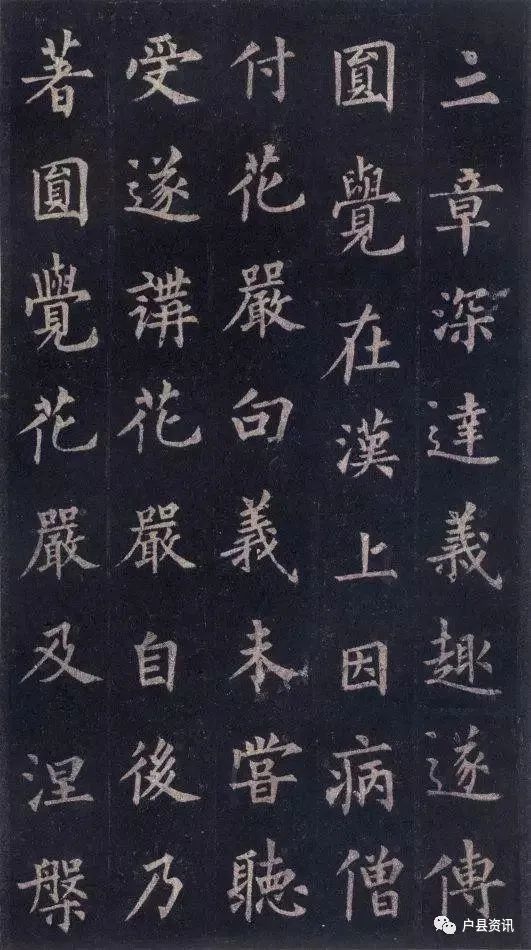 二章深達義趣遂傳
圓覺在漢上因病僧
付花嚴句義未嘗聽
受遂講花嚴自後乃
著圓覺花嚴及涅槃
户县资讯